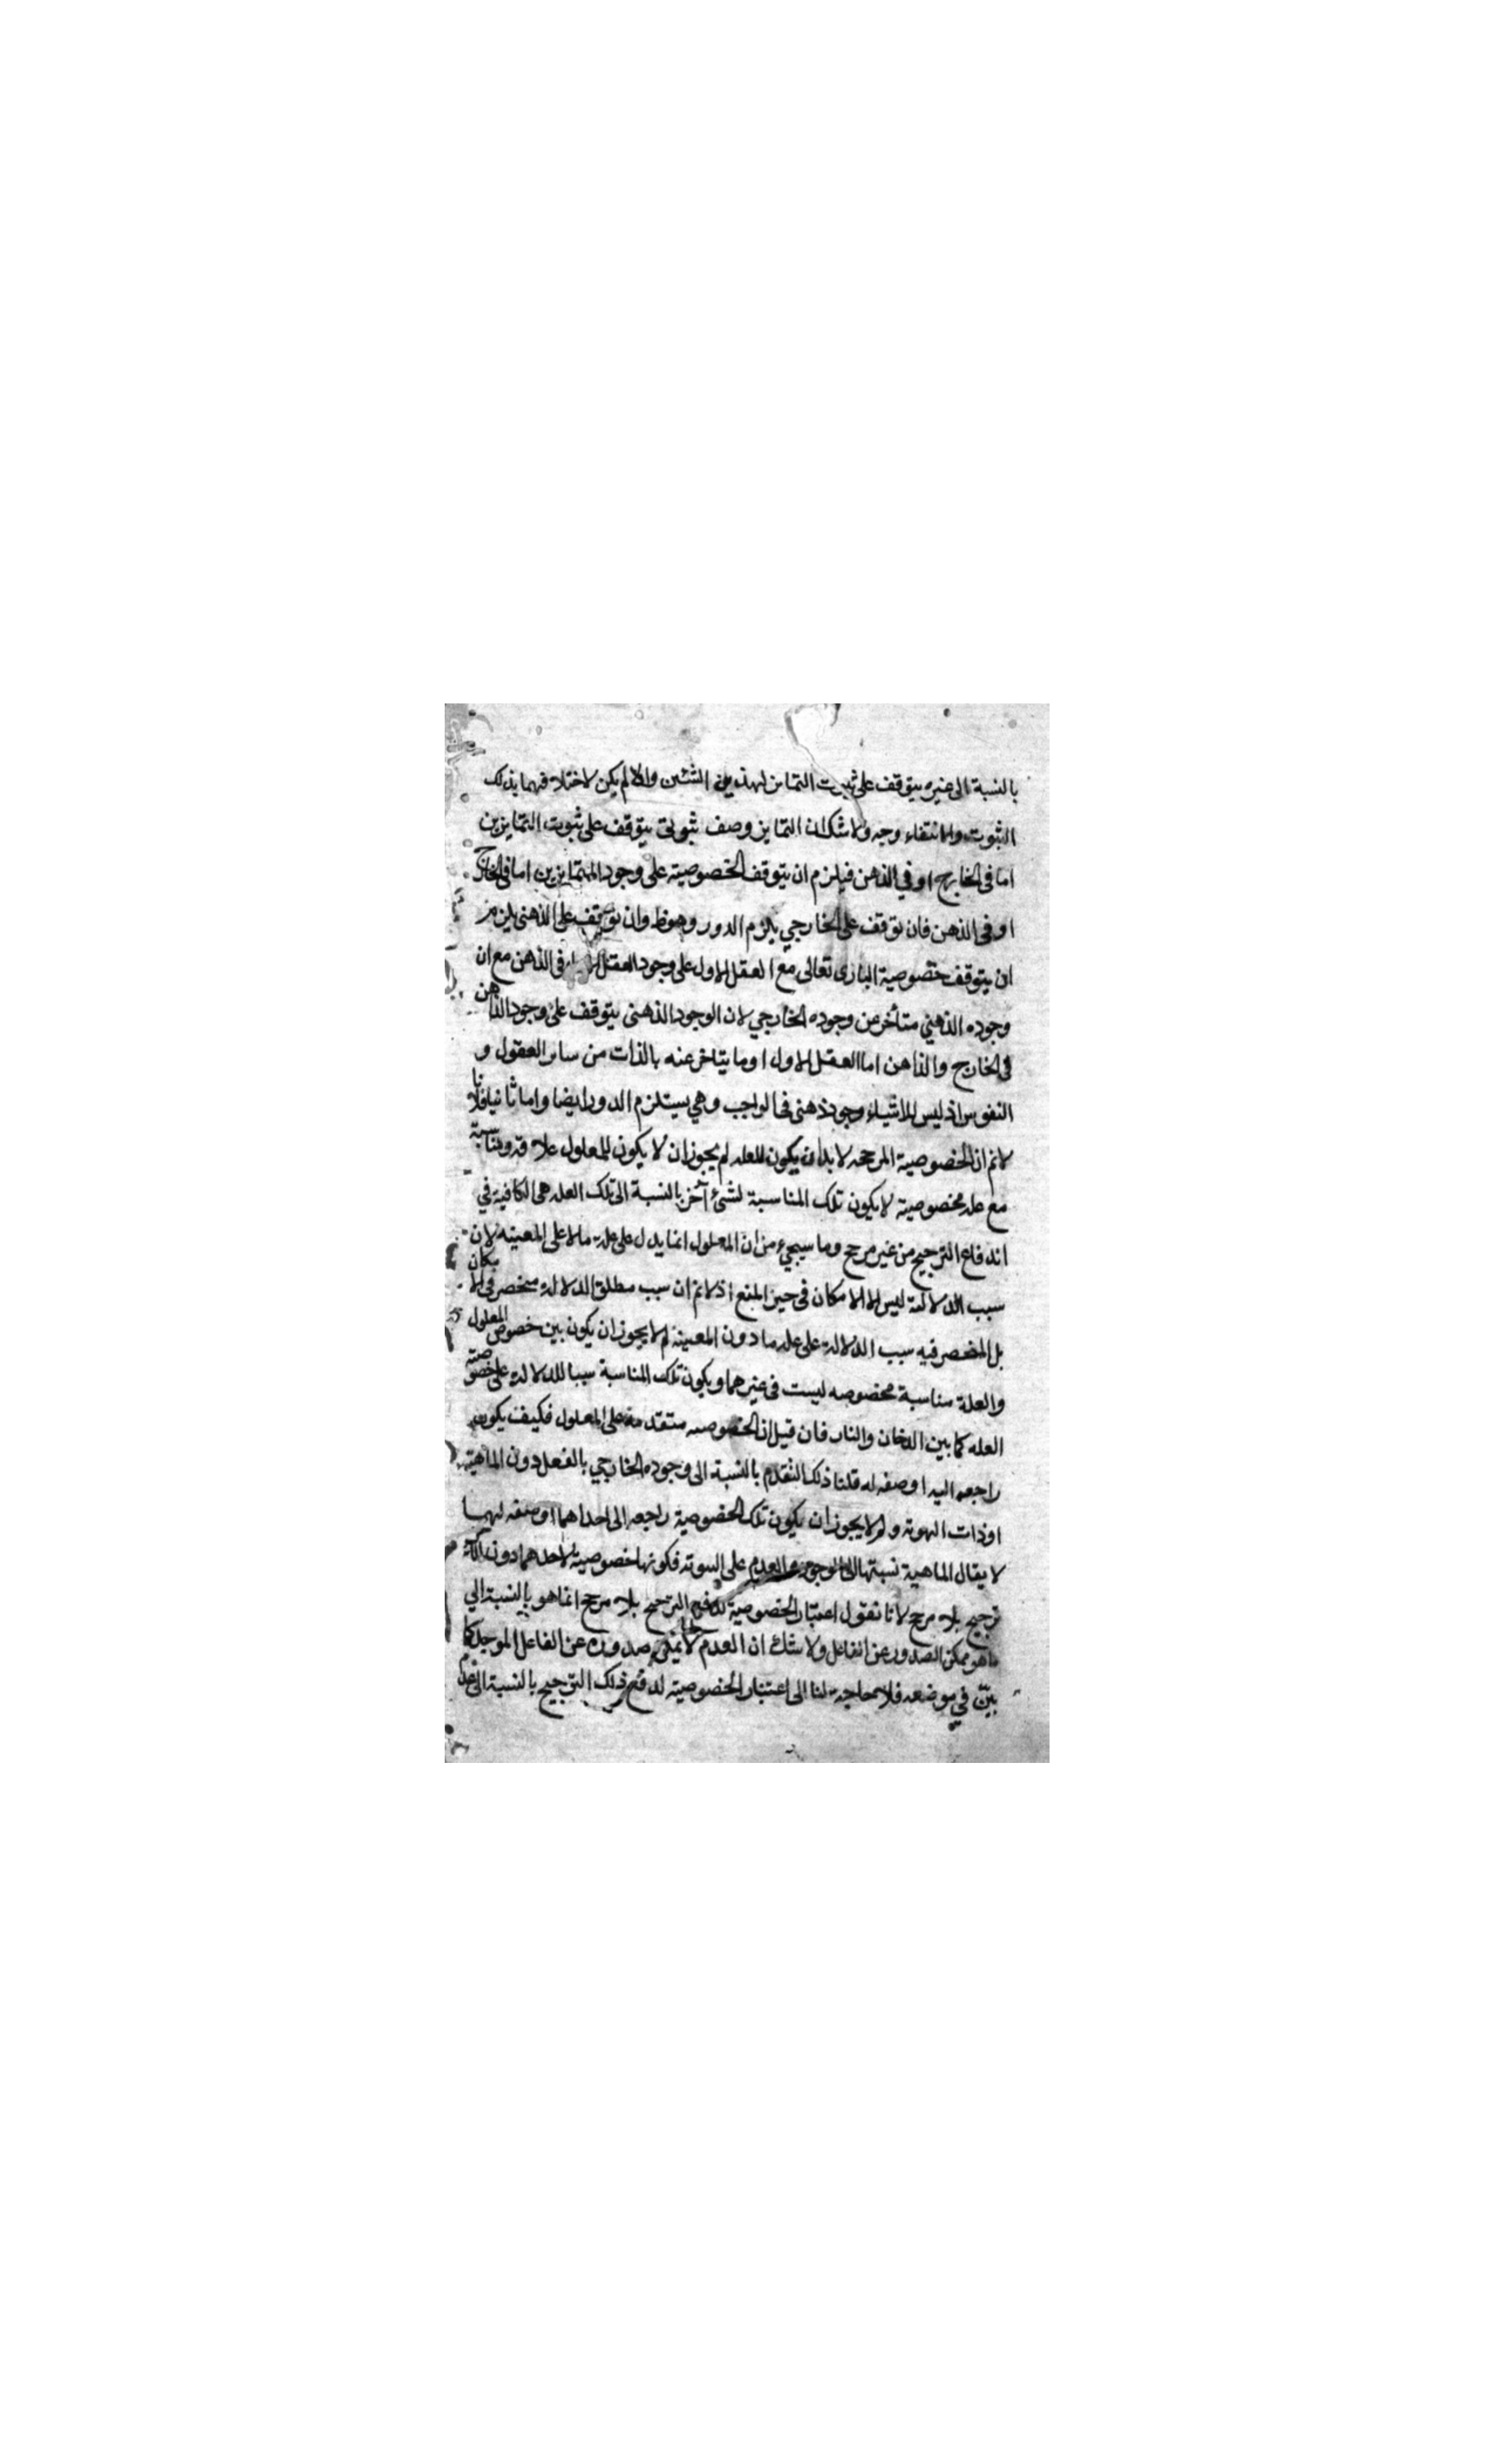 بالنسبة الى غيره يتوقف على ثبوت التمايز لهذين الشئين والا لم يكن لاختلافهما بذلك
الثبوت والانتفاء وجه ولا شك ان التمايز وصف ثبوتى يتوقف على ثبوت المتمايزين
اما فى الخارج او في الذهن فيلزم ان يتوقف الخصوصية على وجود المتمايزين اما فى الخارج
او فى الذهن فان توقف على الخارجي يلزم الدور وهو ظ وان توقف على الذهنى يلزم
ان يتوقف خصوصية البارى تعالى مع العقل الاول على وجود العقل فى الذهن مع ان
وجوده الذهني متأخر عن وجوده الخارجي لان الوجود الذهنى يتوقف على وجود الذاهن
فى الخارج والذاهن اما العقل الاول او ما يتاخر عنه بالذات من ساير العقول و
النفوس اذ ليس للاشياء وجود ذهنى فى الواجب وهي يستلزم الدور ايضا واما ثانيا فلانا
لانم ان الخصوصية المرجحه لابد ان يكون للعله لم يجوز ان لا يكون للمعلول علاقة ومناسبة
مع عله مخصوصية لا يكون تلك المناسبة لشئ آخر بالنسبة الى تلك العله هى الكافية في
اندفاع الترجيح من غير مرجح وما سيجيء من ان المعلول انما يدل على علة ما لا على المعينه لان
سبب الدلالة ليس الا الامكان فى حيز المنع اذ لانم ان سبب مطلق الدلالة منحصر فى الامكان
بل المنحصر فيه سبب الدلالة على عله ما دون المعينة لم لا يجوز ان يكون بين خصوص المعلول
والعلة مناسبة مخصوصه ليست فى غيرهما ويكون تلك المناسبة سببا للدلالة على خصوصية
العله كما بين الدخان والنار فان قيل ان الخصوصيه متقدمة على المعلول فكيف يكون
راجعه اليه او صفه له قلنا ذلك التقدم بالنسبة الى وجوده الخارجي بالفعل دون الماهية
او ذات الهوية ولم لا يجوز ان يكون تلك الخصوصية راجعه الى احداهما او صفه لهما
لا يقال الماهية نسبتها الى الوجود والعدم على السوية فكونها خصوصية لاحدهما دون الآخر
ترجيح بلا مرجح لانا نقول اعتبار الخصوصية لدفع الترجيح بلا مرجح انما هو بالنسبة الي
ما هو ممكن الصدور عن الفاعل ولا شك ان العدم لا يمكن صدوره عن الفاعل الموجد كما
بيّن في موضعه فلا حاجة لنا الى اعتبار الخصوصية لدفع ذلك الترجيح بالنسبة الى